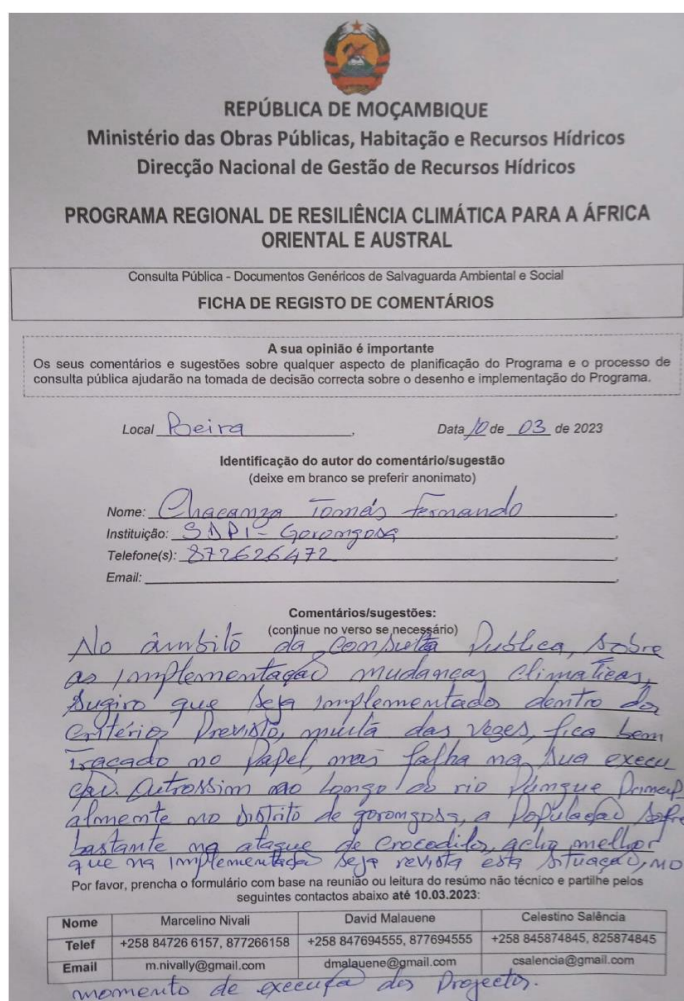 REPÚBLICA DE MOÇAMBIQUE
Ministério das Obras Públicas, Habitação e Recursos Hídricos
Direcção Nacional de Gestão de Recursos Hídricos
PROGRAMA REGIONAL DE RESILIÊNCIA CLIMÁTICA PARA A ÁFRICA
ORIENTAL E AUSTRAL
Consulta Pública - Documentos Genéricos de Salvaguarda Ambiental e Social
FICHA DE REGISTO DE COMENTÁRIOS
A sua opinião é importante
Os seus comentários e sugestões sobre qualquer aspecto de planificação do Programa e o processo de
consulta pública ajudarão na tomada de decisão correcta sobre o desenho e implementação do Programa.
Local Beira, Data 10 de 03 de 2023
Identificação do autor do comentário/sugestão
(deixe em branco se preferir anonimato)
Nome: Chacanza Tomás Fernando,
Instituição: SDPI - Gorongosa,
Telefone(s): 872626472,
Email: ,
Comentários/sugestões:
(continue no verso se necessário)
No âmbito da consulta Publica, sobre
as implementação mudanças climaticas,
sugiro que seja implementado dentro do
critério previsto, muita das vezes, fica bem
traçado no papel, mas falha na sua execu
ção. Outrossim ao longo do rio Púngue princip
almente no distrito de gorongosa, a população sofre
bastante na ataque de crocodilo, acho melhor
que na implementação seja revista esta situação, no
Por favor, prencha o formulário com base na reunião ou leitura do resúmo não técnico e partilhe pelos
seguintes contactos abaixo até 10.03.2023:
Nome Marcelino Nivali David Malauene Celestino Salência
Telef +258 84726 6157, 877266158 +258 847694555, 877694555 +258 845874845, 825874845
Email m.nivally@gmail.com dmalauene@gmail.com csalencia@gmail.com
momento de execução dos Projectos.